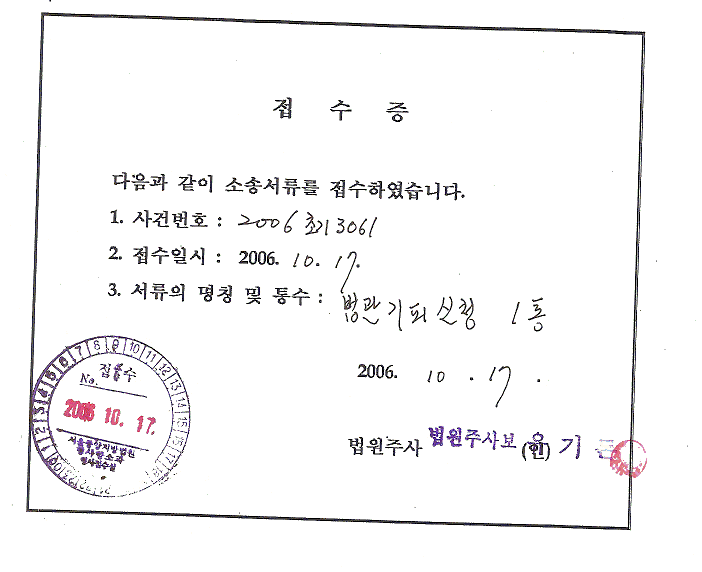 접 수 증
다음과 같이 소송서류를 접수하였습니다.
1. 사건번호 : 2006초기3061
2. 접수일시 : 2006. 10. 17.
3. 서류의 명칭 및 통수 : 법관기피신청 1통
2006. 10. 17.
접수
No.
2006 10. 17.
서울중앙지방법원
형사접수실
법원주사 법원주사보 (인) 기